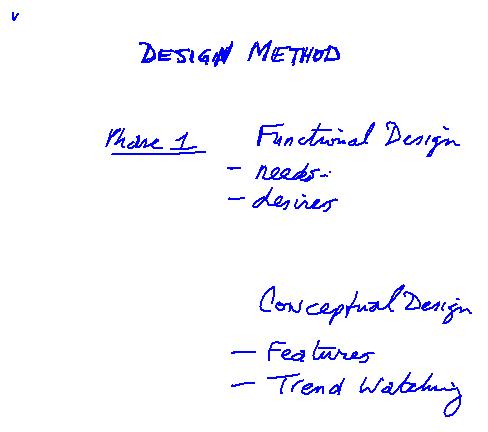 v
DESIGN METHOD
Phase 1 Functional Design
- needs.
- desires
Conceptual Design
- Features
- Trend Watching